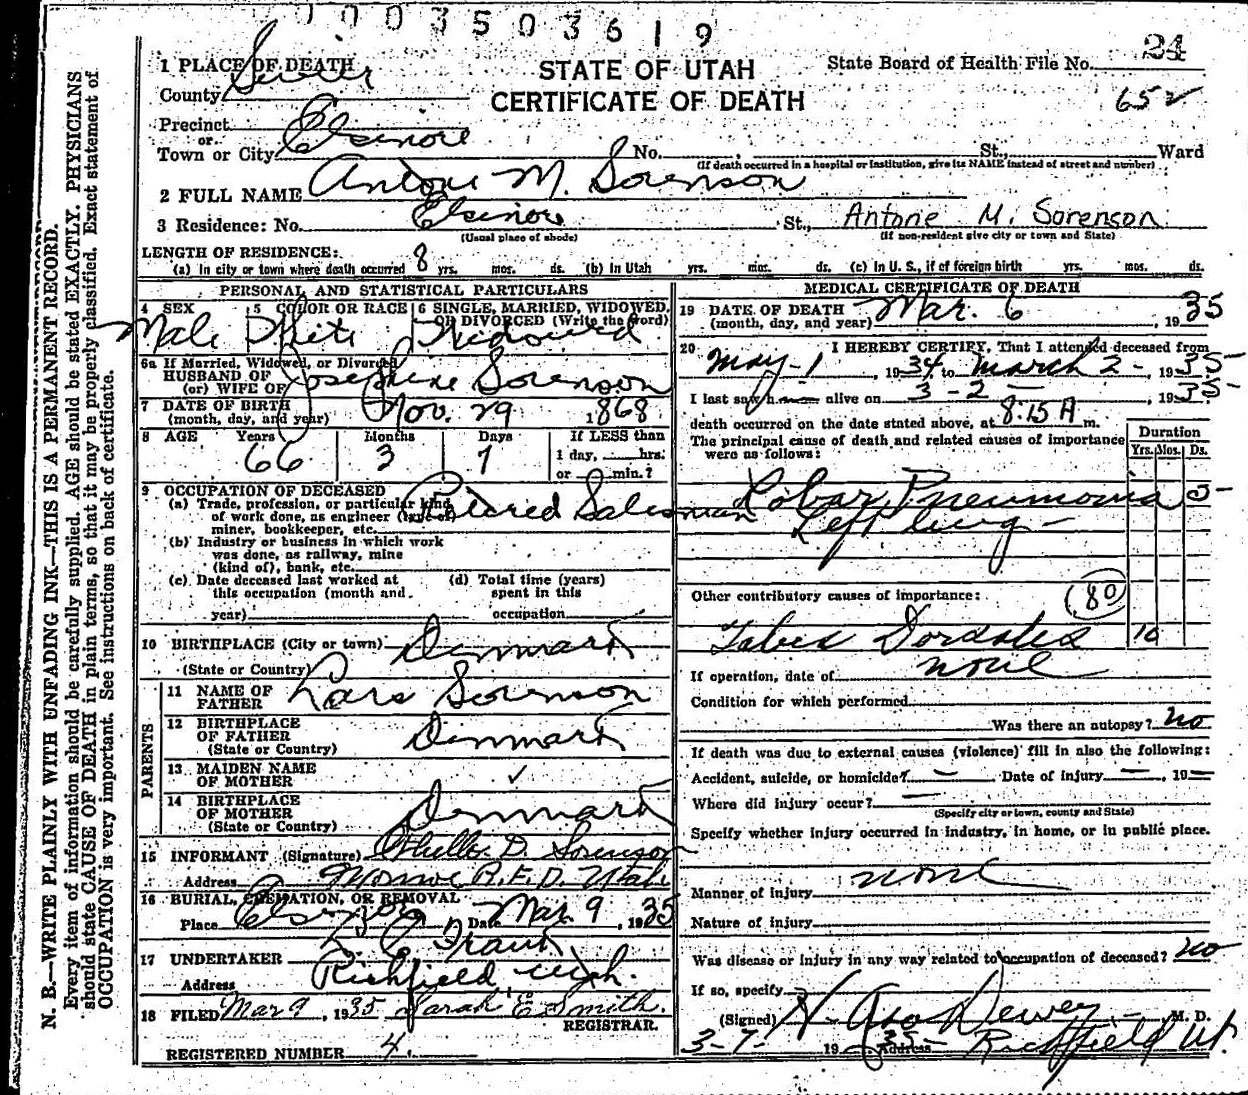 0003503619
24
1 PLACE OF DEATH
STATE OF UTAH
State Board of Health File No.
County Sevier
CERTIFICATE OF DEATH
652
Precinct
or
Town or City Elsinore No. St., Ward
(If death occurred in a hospital or institution, give its NAME instead of street and number)
2 FULL NAME Antone M. Sorenson
3 Residence: No. Elsinore St., Antone M. Sorenson
(Usual place of abode) (If non-resident give city or town and State)
LENGTH OF RESIDENCE:
(a) In city or town where death occurred 8 yrs. mos. ds. (b) In Utah yrs. mos. ds. (c) In U. S., if of foreign birth yrs. mos. ds.
PERSONAL AND STATISTICAL PARTICULARS
4 SEX 5 COLOR OR RACE 6 SINGLE, MARRIED, WIDOWED, OR DIVORCED (Write the word)
Male White Widowed
6a If Married, Widowed, or Divorced
HUSBAND OF
(or) WIFE OF Josephine Sorenson
7 DATE OF BIRTH
(month, day, and year) Nov. 29 1868
8 AGE Years Months Days If LESS than
66 3 7 1 day, hrs.
or min.?
9 OCCUPATION OF DECEASED
(a) Trade, profession, or particular kind
of work done, as engineer (type of)
miner, bookkeeper, etc. Retired Salesman
(b) Industry or business in which work
was done, as railway, mine
(kind of), bank, etc.
(c) Date deceased last worked at
this occupation (month and
year)
(d) Total time (years)
spent in this
occupation
10 BIRTHPLACE (City or town) Denmark
(State or Country)
PARENTS
11 NAME OF
FATHER Lars Sorenson
12 BIRTHPLACE
OF FATHER Denmark
(State or Country)
13 MAIDEN NAME
OF MOTHER ✓
14 BIRTHPLACE
OF MOTHER Denmark
(State or Country)
15 INFORMANT (Signature) D. Sorenson
Address Monroe R.F.D. Utah
16 BURIAL, CREMATION, OR REMOVAL
Place Elsinore Date Mar. 9, 1935
17 UNDERTAKER
Address Richfield, Utah.
18 FILED Mar 9, 1935 Sarah E. Smith.
REGISTRAR.
REGISTERED NUMBER 4.
MEDICAL CERTIFICATE OF DEATH
19 DATE OF DEATH
(month, day, and year) Mar. 6, 1935
20 I HEREBY CERTIFY, That I attended deceased from
May-1, 1934 to March 2-, 1935-
I last saw h alive on 3-2-, 1935-
death occurred on the date stated above, at 8:15 A m.
The principal cause of death and related causes of importance
were as follows:
Duration
Yrs. Mos. Ds.
Lobar Pneumonia 5-
Left lung-
Other contributory causes of importance:
(80)
Tabes Dorsales 10
If operation, date of none
Condition for which performed
Was there an autopsy? no
If death was due to external causes (violence) fill in also the following:
Accident, suicide, or homicide? — Date of injury —, 19—
Where did injury occur? —
(Specify city or town, county and State)
Specify whether injury occurred in industry, in home, or in public place.
none
Manner of injury
Nature of injury
Was disease or injury in any way related to occupation of deceased? no
If so, specify
(Signed) Dewey M. D.
3-7- 1935- Address Richfield Ut.
N. B.—WRITE PLAINLY WITH UNFADING INK—THIS IS A PERMANENT RECORD.
Every item of information should be carefully supplied. AGE should be stated EXACTLY. PHYSICIANS
should state CAUSE OF DEATH in plain terms, so that it may be properly classified. Exact statement of
OCCUPATION is very important. See instructions on back of certificate.